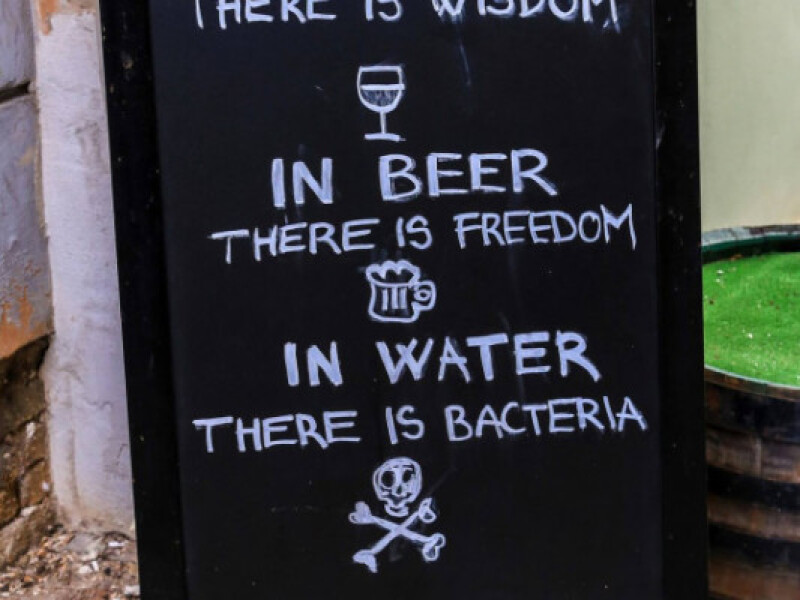 THERE IS WISDOM
IN BEER
THERE IS FREEDOM
IN WATER
THERE IS BACTERIA